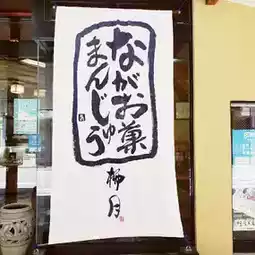 ながお菓
まんじゅう
柳月